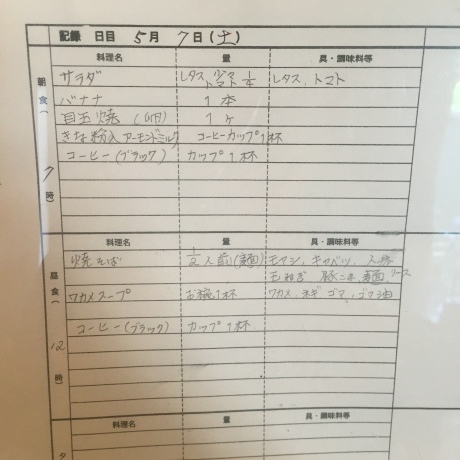 記録 日目 5月 7日(土)
料理名 量 具・調味料等
朝食(7時)
サラダ レタス 少々 トマト 1/4 レタス、トマト
バナナ 1本
目玉焼 1ケ
きな粉入アーモンドミルク コーヒーカップ1杯
コーヒー(ブラック) カップ1杯
料理名 量 具・調味料等
昼食(12時)
焼そば 1/2人前(麺) モヤシ、キャベツ、人参
玉ねぎ 豚こま、麺、ソース
ワカメスープ お椀1杯 ワカメ、ネギ、ゴマ、ゴマ油
コーヒー(ブラック) カップ1杯
料理名 量 具・調味料等
夕